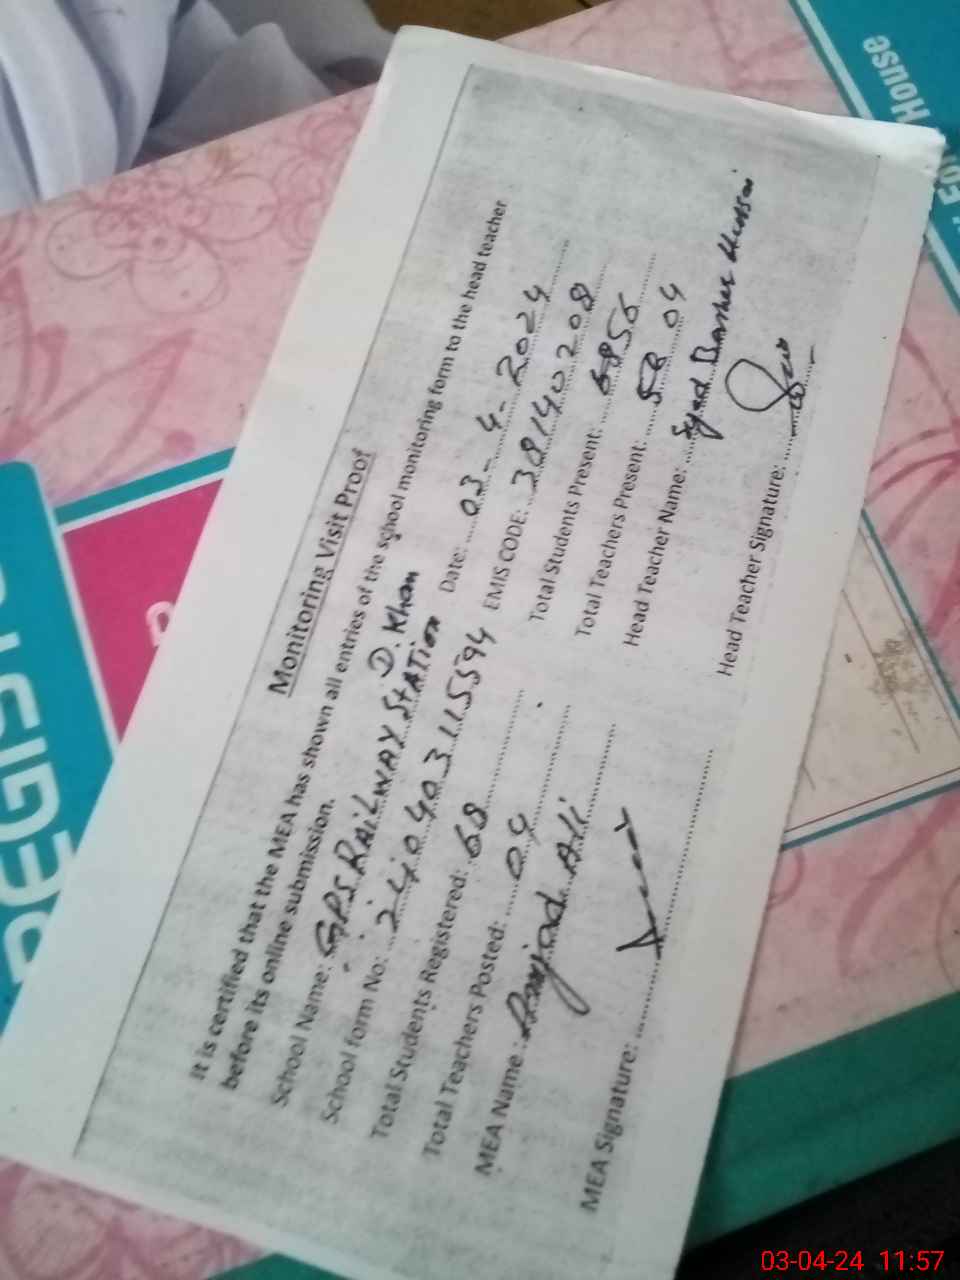 Monitoring Visit Proof
It is certified that the MEA has shown all entries of the school monitoring form to the head teacher
before its online submission.
School Name: GPS RAILWAY STATION D. Khan Date: 03-4-2024
School form No: 240403115594 EMIS CODE: 38140208
Total Students Registered: 68 Total Students Present: 56
Total Teachers Posted: 04 Total Teachers Present: 04
MEA Name: Amjad Ali Head Teacher Name: Syed
MEA Signature: Head Teacher Signature:
House
03-04-24 11:57